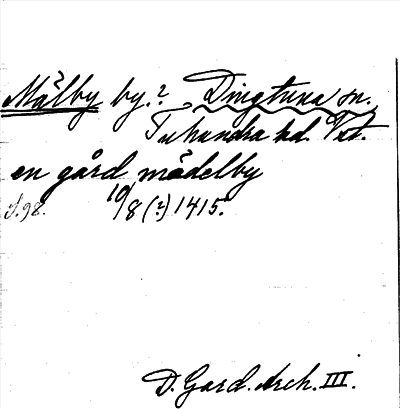 Mälby by.? Dingtuna sn.
Tuhundra hd. Vst.
en gård mädelby
S. 98. 10/8 (?) 1415.
D. Gard. Arch. III.